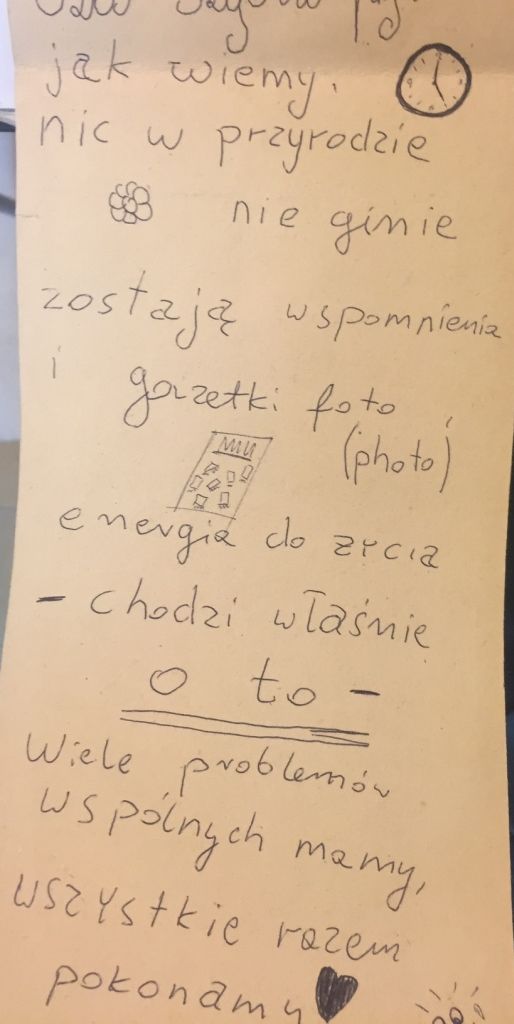 jak wiemy,
nic w przyrodzie
nie ginie
zostają wspomnienia
i gazetki foto,
(photo)
energia do zycia
- chodzi właśnie
o to -
Wiele problemów
wspólnych mamy,
wszystkie razem
pokonamy